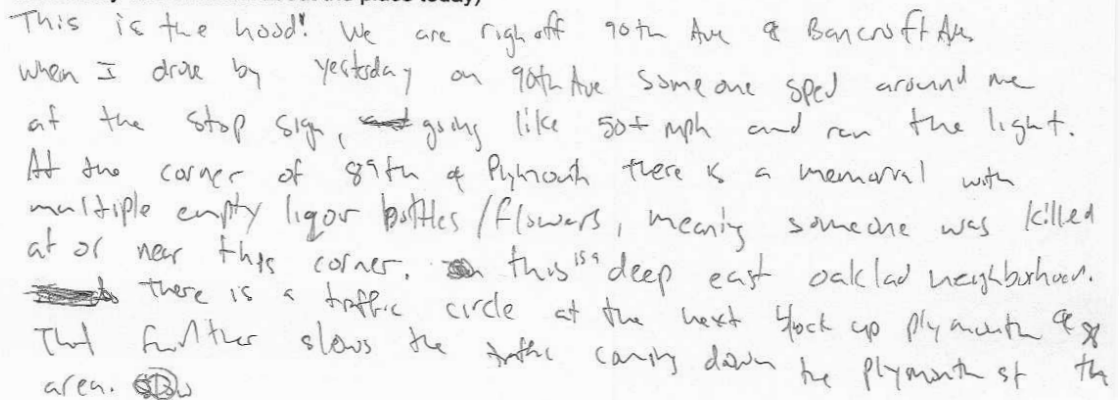 about the place today)
This is the hood! We are righ off 90th Ave & Bancroft Ave
when I drove by yesterday on 90th Ave someone sped around me
at the stop sign, going like 50+ mph and ran the light.
At the corner of 89th & Plymouth there is a memorial with
multiple empty liqour bottles/flowers, meaning someone was killed
at or near this corner. this is a deep east oaklad neighborhoon.
there is a traffic circle at the next block up plymouth &
That further slows the traffic coming down the plymouth st the
area.